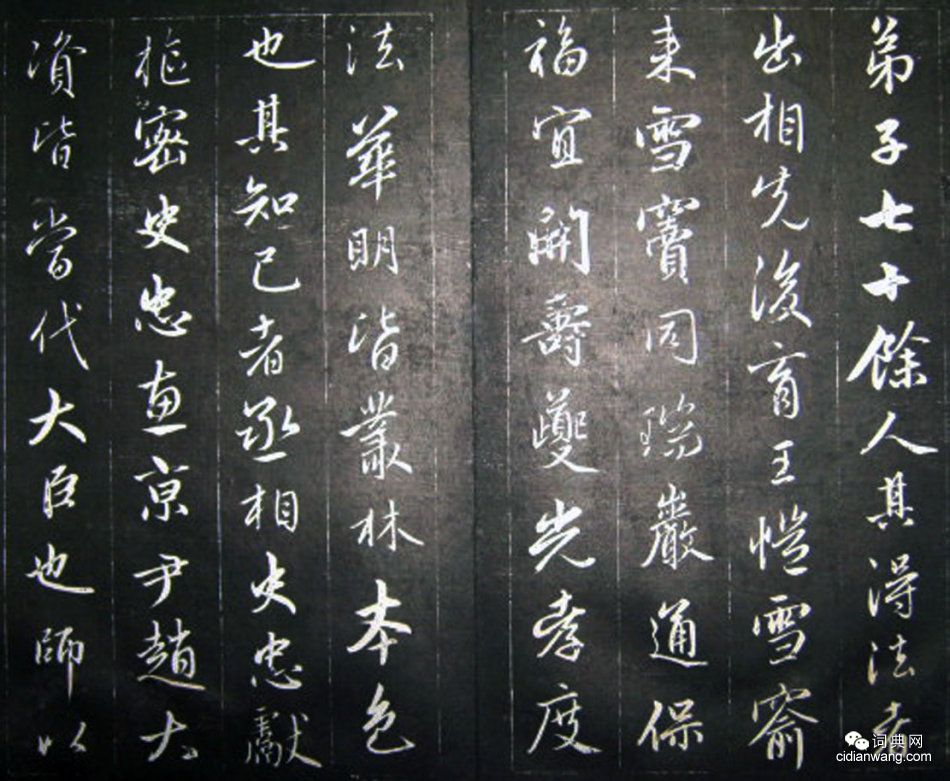 弟子七十餘人其得法者
出相先後育王愷雪
来雪竇同瑞巖通保
福宜開壽夔光孝度
法華明皆叢林本色
也其知己者丞相史忠獻
樞密史忠宣京尹趙大
資皆當代大臣也師以
词典网
cidianwang.com